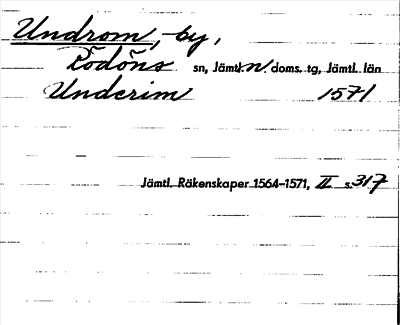 Undrom, -by,
Rödöns sn, Jämtl. n. doms. tg, Jämtl. län
Underim 1571
Jämtl. Räkenskaper 1564-1571, II s. 317